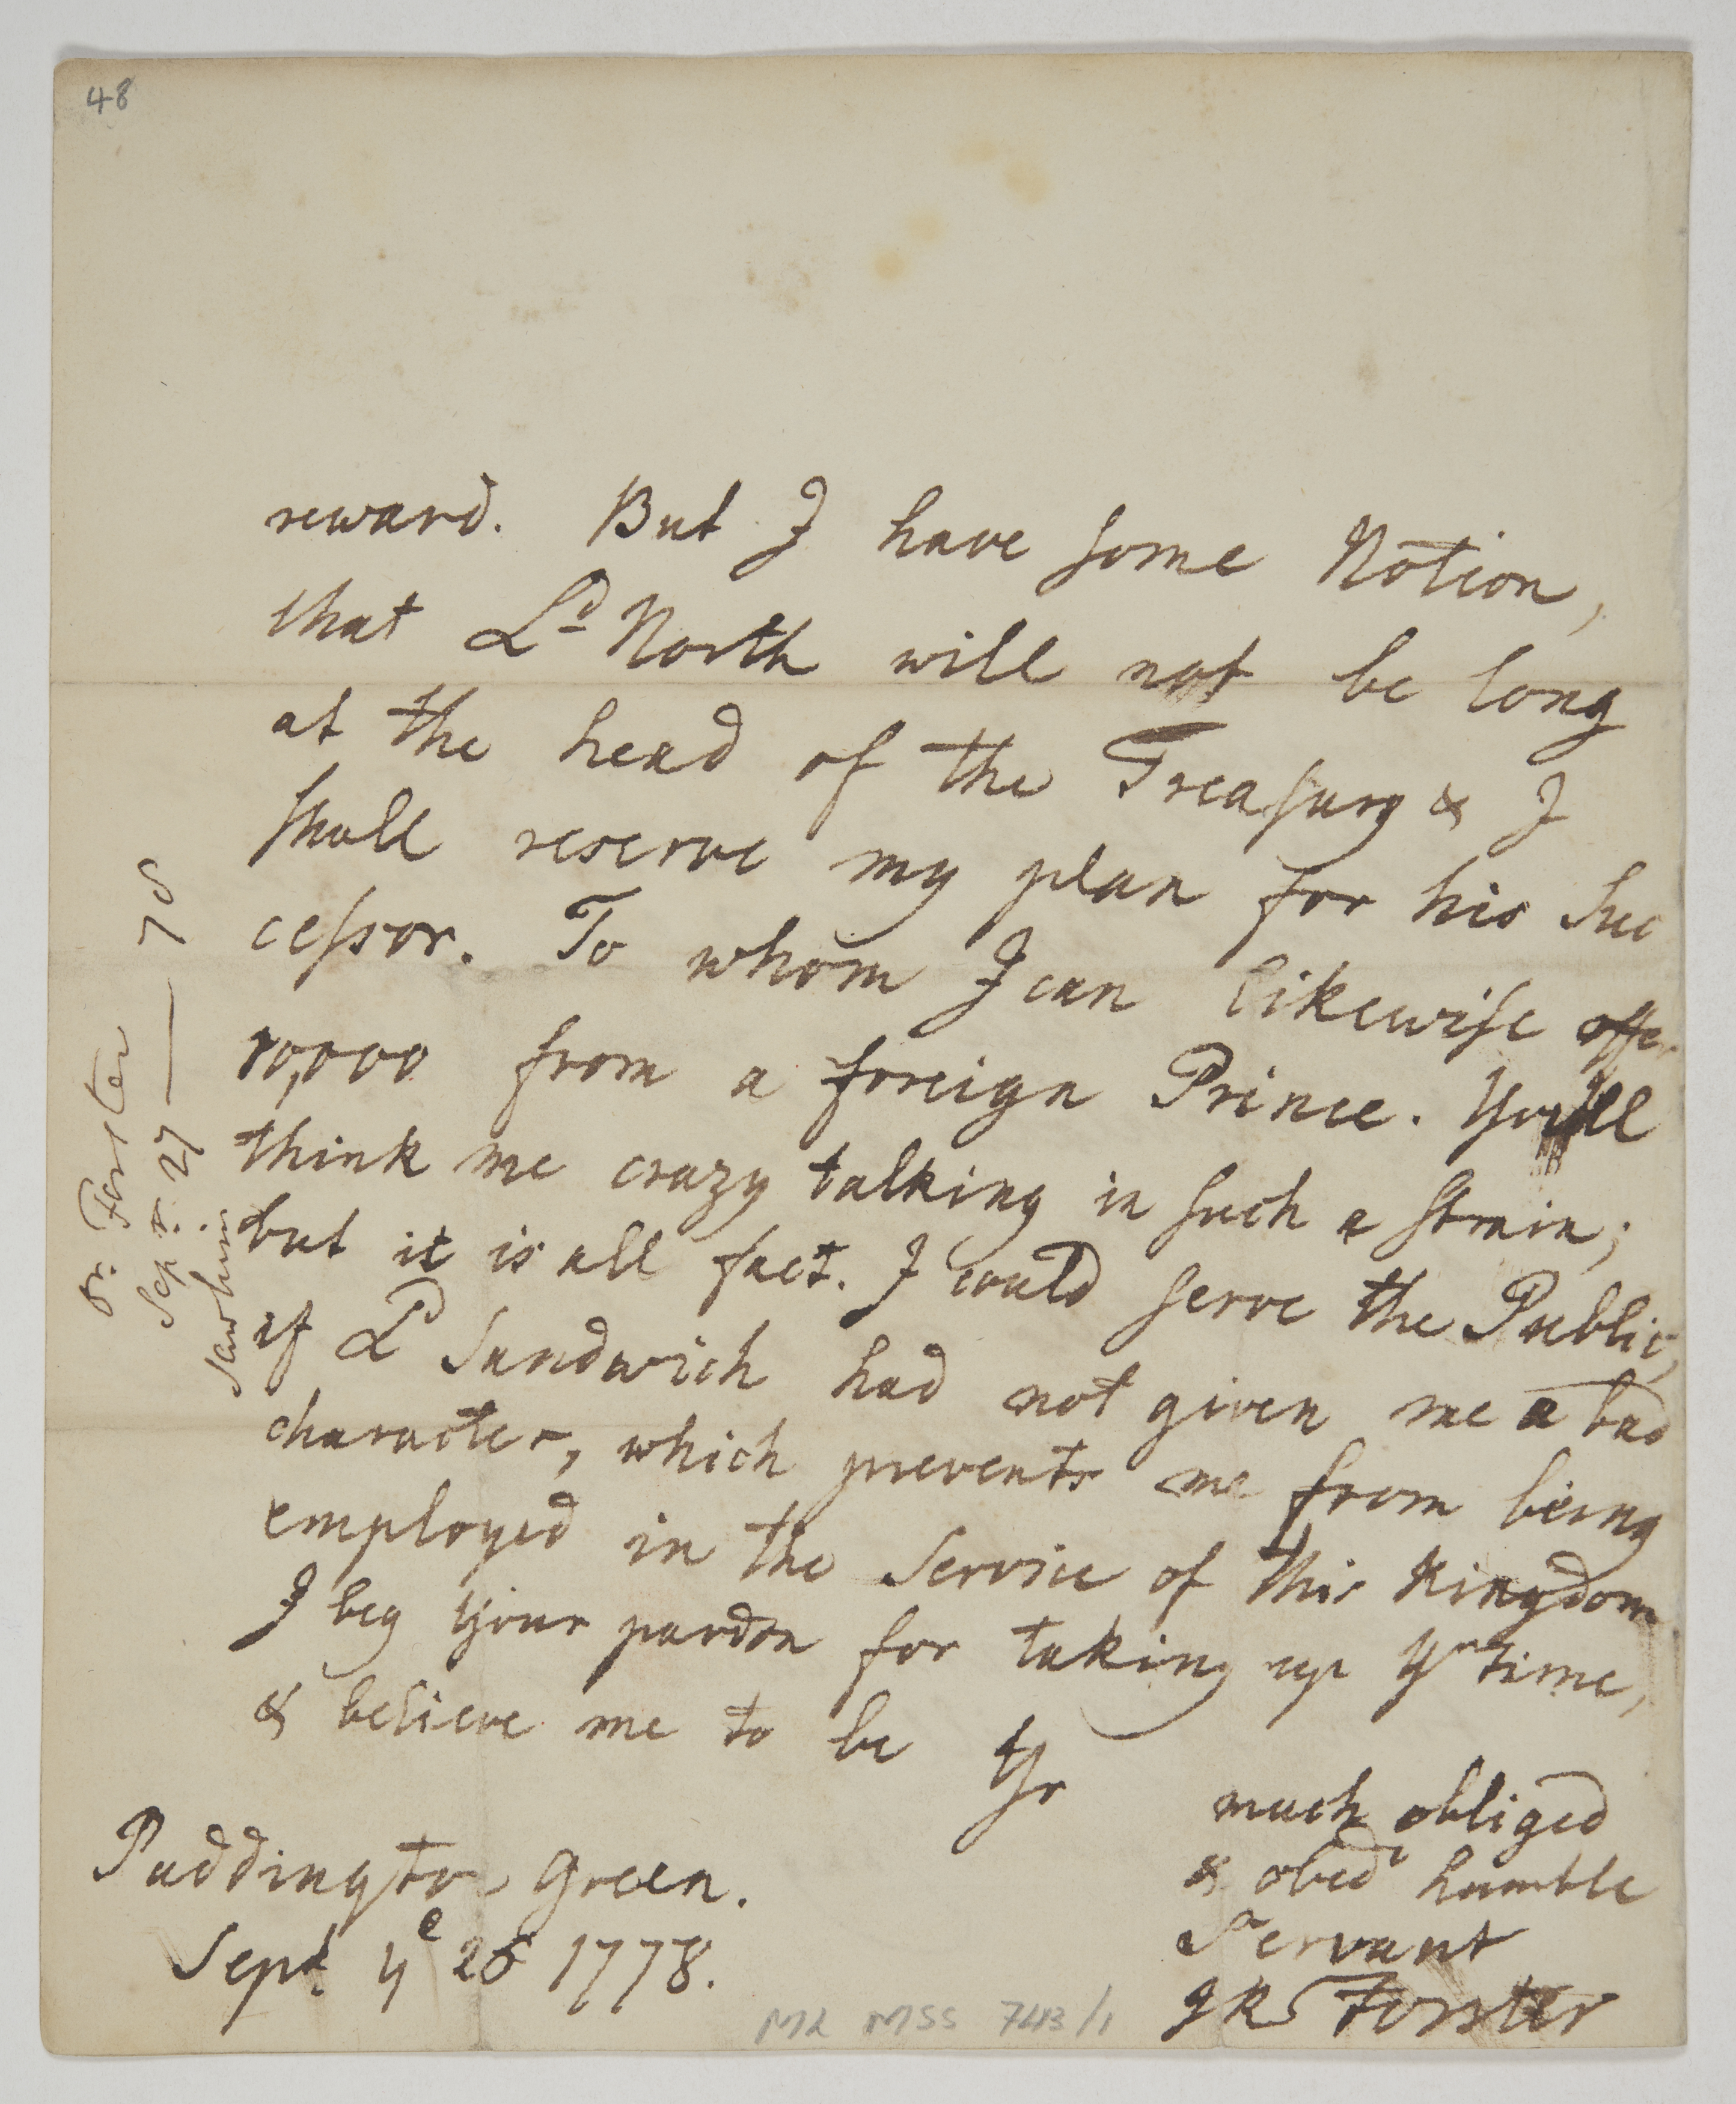 48
reward. But I have some Notion,
that L.^d North will not be long
at the head of the Treasury & I
shall reserve my plan for his Suc
cessor. To whom I can likewise offer
10,000 from a foreign Prince. You'll
think me crazy talking in such a strain;
but it is all fact. I could serve the Public,
if L^d Sandwich had not given me a bad
character, which prevents me from being
employed in the Service of this Kingdom
I beg Your pardon for taking up Y^r time,
& believe me to be Yr
much obliged
& obed^t humble
Servant
JR Forster
Paddington Green.
Sept. y^e 26 1778.
Dr. Forster
Sepr. 27 — 78
ML MSS 743/1